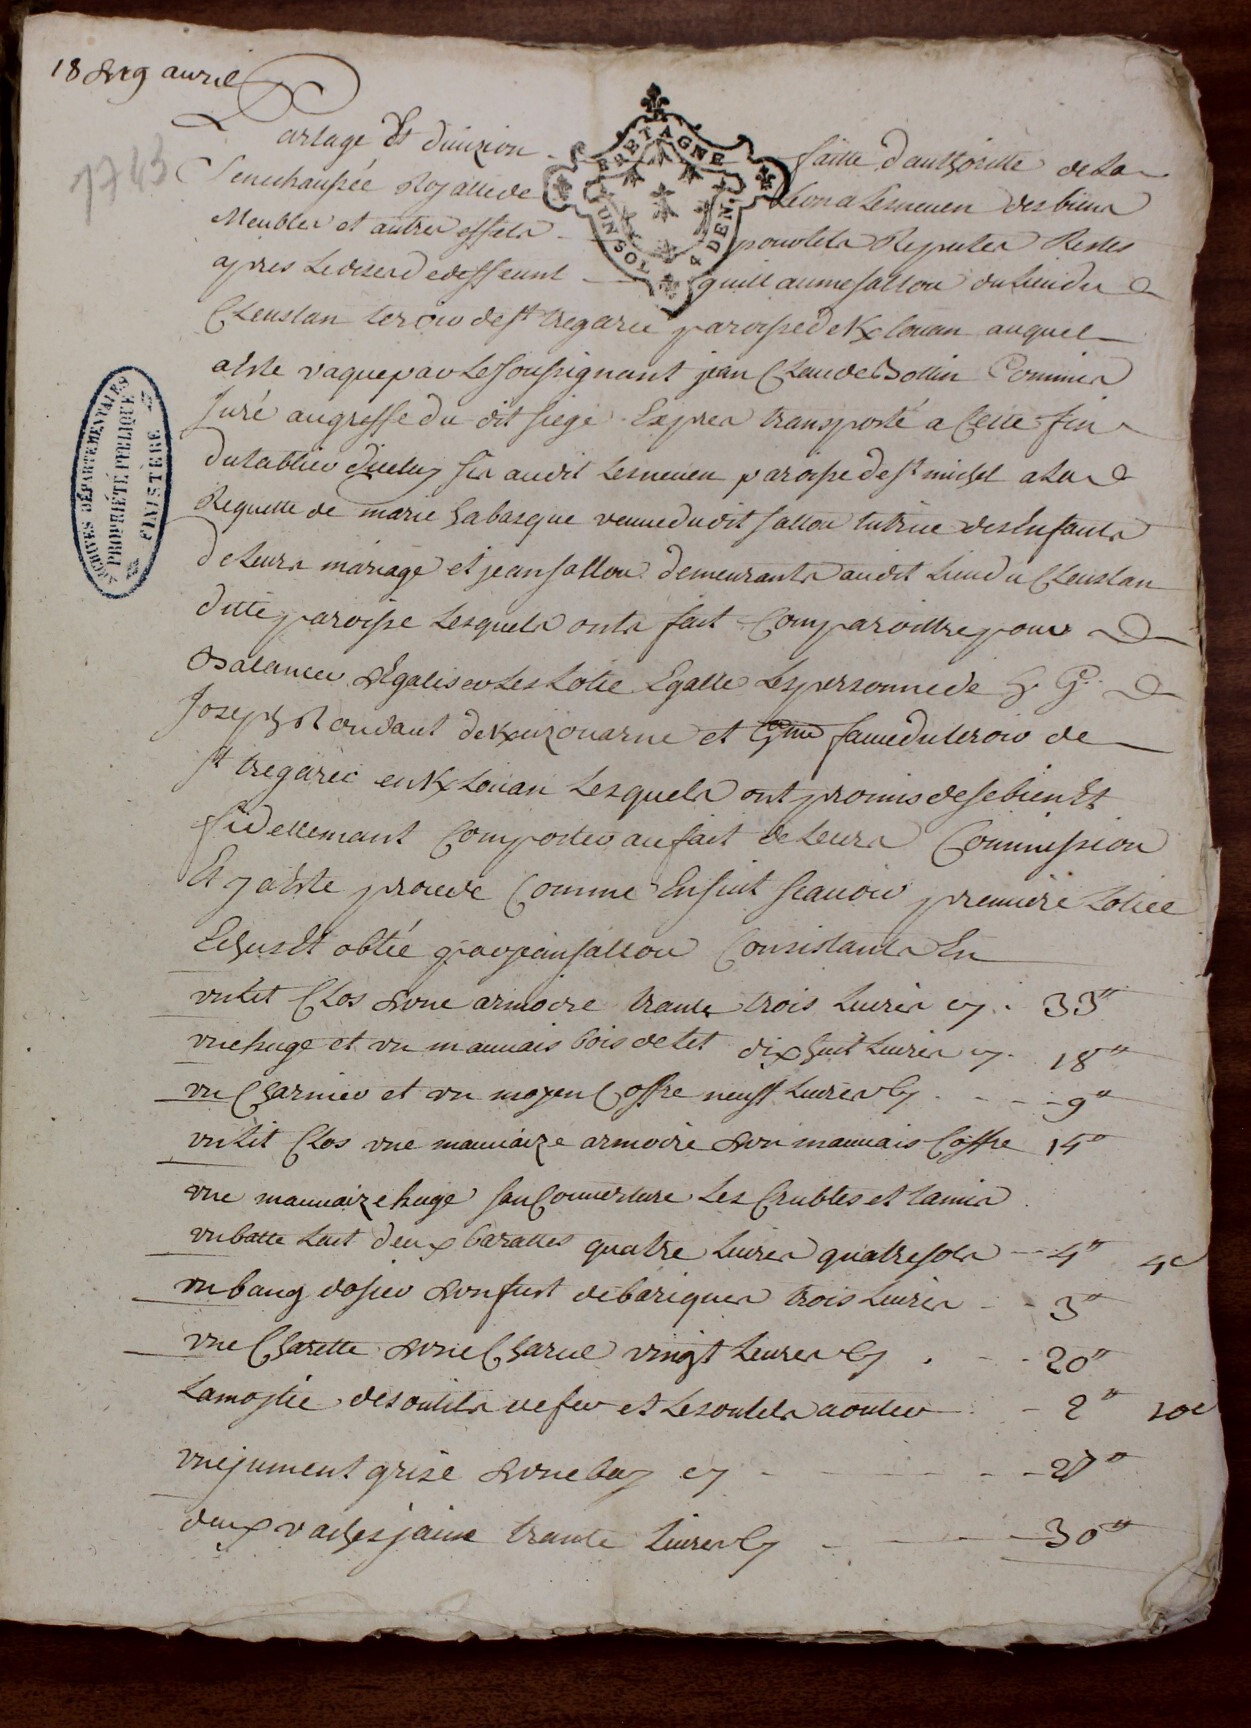 18 & 19 avril
1743
Partage Et divizion faitte d'authoritte de La
Senechaussée Royalle de Leon a Lesneven des biens
Meubles et autres effets pour tels Reputés Restes
apres Le deserd edeffeunt guillaume fallou du Lieu du
Cleustan teroir de st tregarec paroisse de Klouan auquel
a Este vaqué par Le Soussignant jean Claude Bottin Commis
Juré au greffe du dit siege Expres transporté a Cette fin
du tablier d'iceluy sis audit Lesneven paroisse de st michel a La
Requette de marie habasque veuve dudit fallou tutrice des Enfants
de Leurs mariage et jean fallou demeurants audit Lieu du Cleustan
ditte paroisse Lesquels onts fait Comparoittre pour
Balancer & Egaliser Les Lotie Egalle Les personne de h. G.
Joseph Roudaut de Kouzouarne et Gme faue du teroir de
st tregarec en Klouan Lesquels ont promis de se bien Et
fidellemant Comporter au fait de Leurs Commission
Et y a Este procede Comme Ensuit scauoir premiere Lotiee
Echus Et obtée par jean fallou Consistants En
un Lit Clos & une armoire trante trois Livres cy . 33"
une huge et un mauvais bois de Let dix huit Livres cy . 18"
un Charnier et un moyen Coffre neuff Livres Cy . - - - 9"
un Lit Clos une mauvaize armoire & un mauvais Coffre 15"
une mauvaize huge san Couverture Les Crubles et tamis
un batte Lait deux baralles quatre Livres quatre sols - - 4" 4s
un bang dosier & un fust de bariques trois Livres - - 3"
une Charette & une Charue vingt Livres Cy . - - 20"
La moytie des outils de fer et Les outils a outer - 2" 10s
une jument grise & une bay cy - - - - 27"
deux vaches jaune trante Livres Cy - - - 30"
BRETAGNE
UN SOL 4 DEN.
ARCHIVES DÉPARTEMENTALES
PROPRIÉTÉ PUBLIQUE
FINISTÈRE